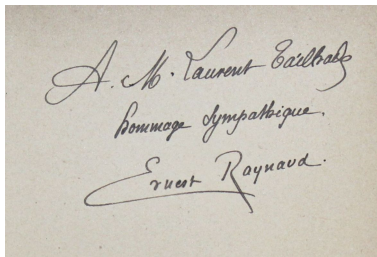 A. M. Laurent Tailhade
hommage sympathique.
Ernest Raynaud.